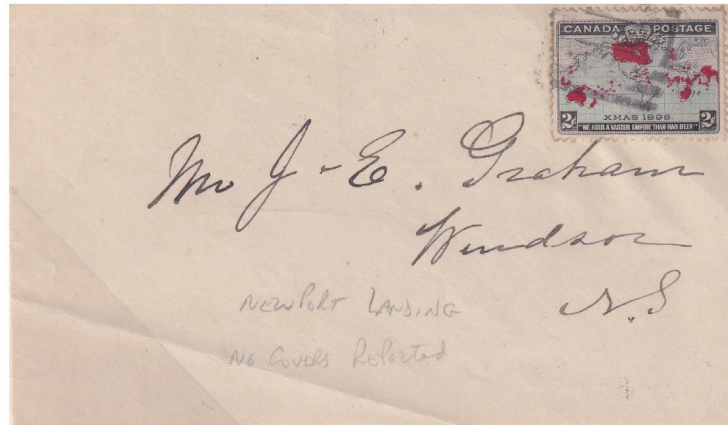 CANADA POSTAGE
XMAS 1898
2c 2c
"WE HOLD A VASTER EMPIRE THAN HAS BEEN"
Mr J. E. Graham
Windsor
N.S
NEWPORT LANDING
No Covers Reported